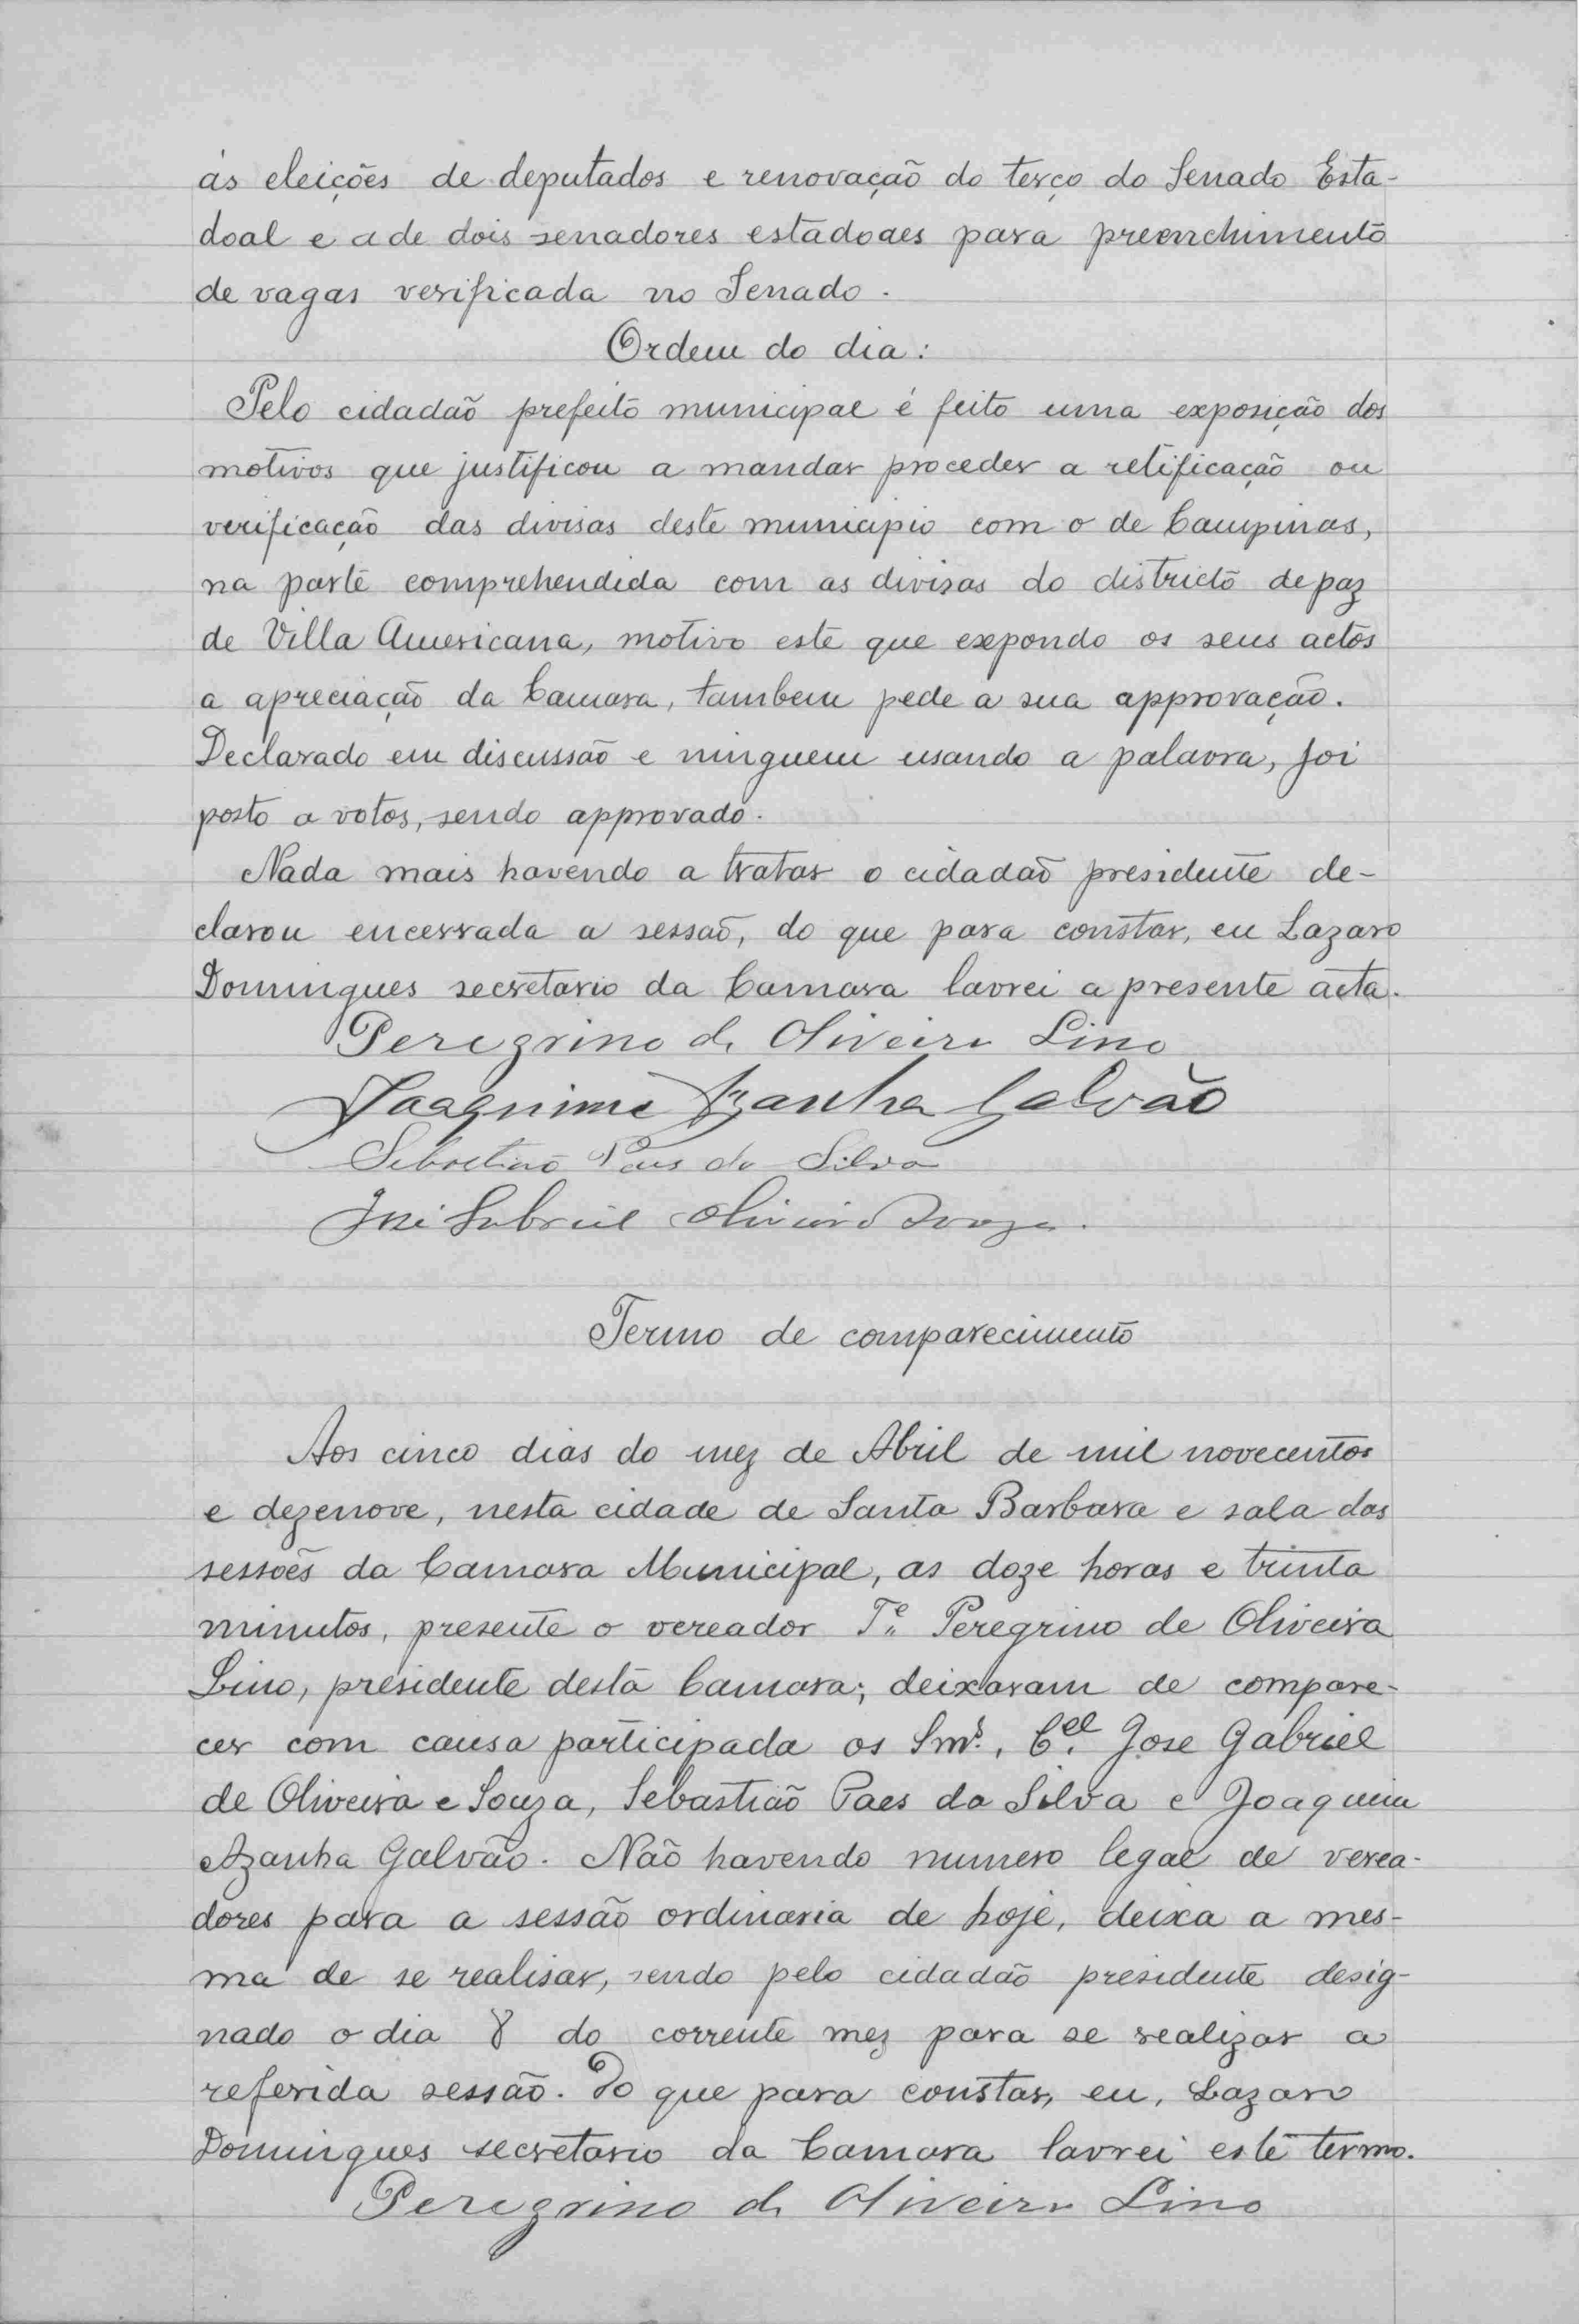 ás eleições de deputados e renovação do terço do Senado Esta-
doal e a de dois senadores estadoaes para preenchimento
de vagas verificada no Senado.
Ordem do dia:
Pelo cidadão prefeito municipal é feito uma exposição dos
motivos que justificou a mandar proceder a retificação ou
verificação das divisas deste municipio com o de Campinas,
na parte comprehendida com as divisas do districto de paz
de Villa Americana, motivo este que expondo os seus actos
a apreciação da Camara, tambem pede a sua approvação.
Declarado em discussão e ninguem usando a palavra, foi
posto a votos, sendo approvado.
Nada mais havendo a tratar o cidadão presidente de-
clarou encerrada a sessão, do que para constar, eu Lazaro
Domingues secretario da Camara lavrei a presente acta.
Peregrino de Oliveira Lino
Joaquim Azanha Galvão
Sebastião Paes da Silva
José Gabriel Oliveira Souza.
Termo de comparecimento
Aos cinco dias do mez de Abril de mil novecentos
e dezenove, nesta cidade de Santa Barbara e sala das
sessões da Camara Municipal, as doze horas e trinta
minutos, presente o vereador Te. Peregrino de Oliveira
Lino, presidente desta Camara; deixaram de compare-
cer com causa participada os Snrs., Cel. Jose Gabriel
de Oliveira e Souza, Sebastião Paes da Silva e Joaquim
Azanha Galvão. Não havendo numero legal de verea-
dores para a sessão ordinaria de hoje, deixa a mes-
ma de se realisar, sendo pelo cidadão presidente desig-
nado o dia 8 do corrente mez para se realizar a
referida sessão. Do que para constar, eu, Lazaro
Domingues secretario da Camara lavrei este termo.
Peregrino de Oliveira Lino